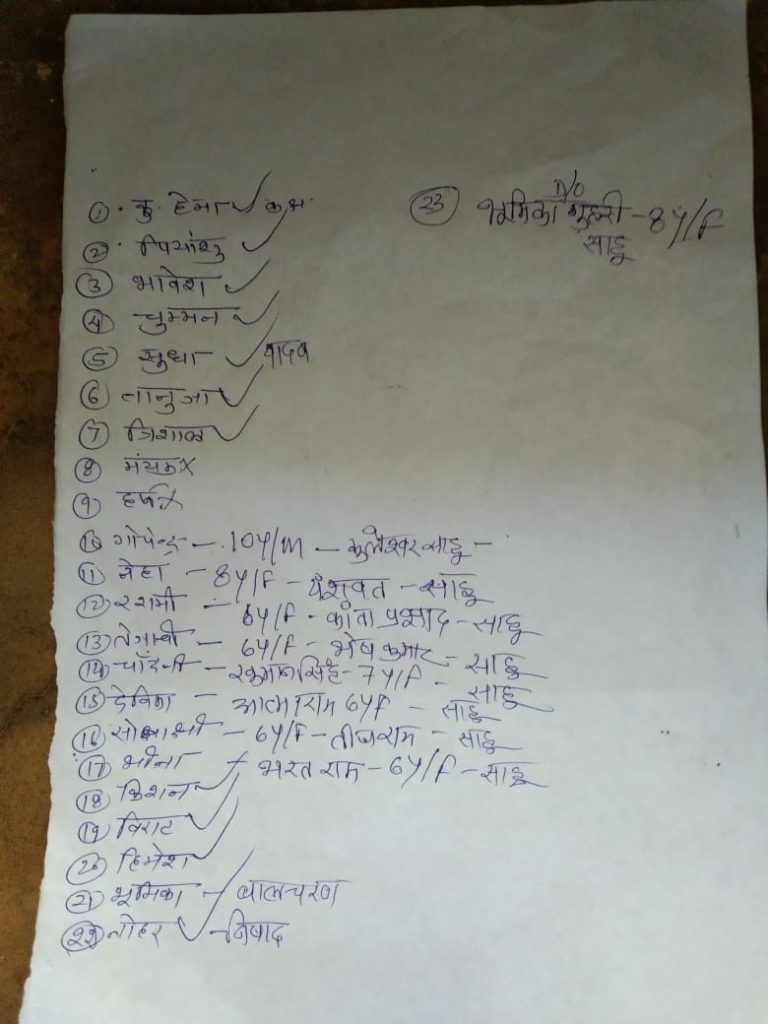 ① कु. हेमा ✓
② पियांशु ✓
③ भावेश ✓
④ चुम्मन ✓
⑤ सुधा ✓ यादव
⑥ तानुजा ✓
⑦ त्रिशाल ✓
⑧ मंयक ×
⑨ हर्ष ×
⑩ गोपेन्द्र – 10y/M – कुलेश्वर साहू –
⑪ नेहा – 8y/F – यशवंत – साहू
⑫ रशमी – 6y/F – कांता प्रसाद – साहू
⑬ – 6y/F – कुमार – साहू
⑭ चाँदनी – – 7y/F – साहू
⑮ देविका – आत्मा राम 6y/F – साहू
⑯ – 6y/F – तीजराम – साहू
⑰ – भरत राम – 6y/F – साहू
⑱ किशन ✓
⑲ विराट ✓
⑳ हिमेश ✓
㉑ भूमिका ✓ – बालचरण
㉒ तोहर ✓ – निषाद
㉓ भूमिका D/O – 8y/F
साहू